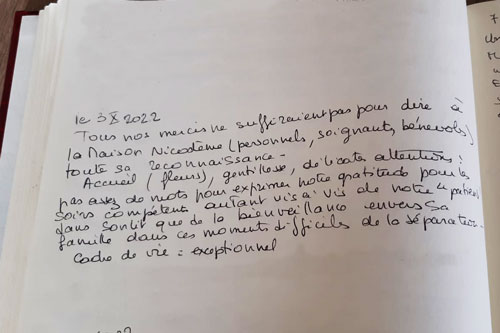 le 3 X 2022
Tous nos mercis ne suffiraient pas pour dire à
la Maison Nicodème (personnels, soignants, bénévols)
toute sa reconnaissance -
Accueil (fleurs), gentillesse, délicates attentions:
pas assez de mots pour exprimer notre gratitude pour les
soins compétent, autant vis à vis de notre patient
que de la bienveillance envers sa
famille dans ces moments difficils de la séparation.
Cadre de vie = exceptionnel
7